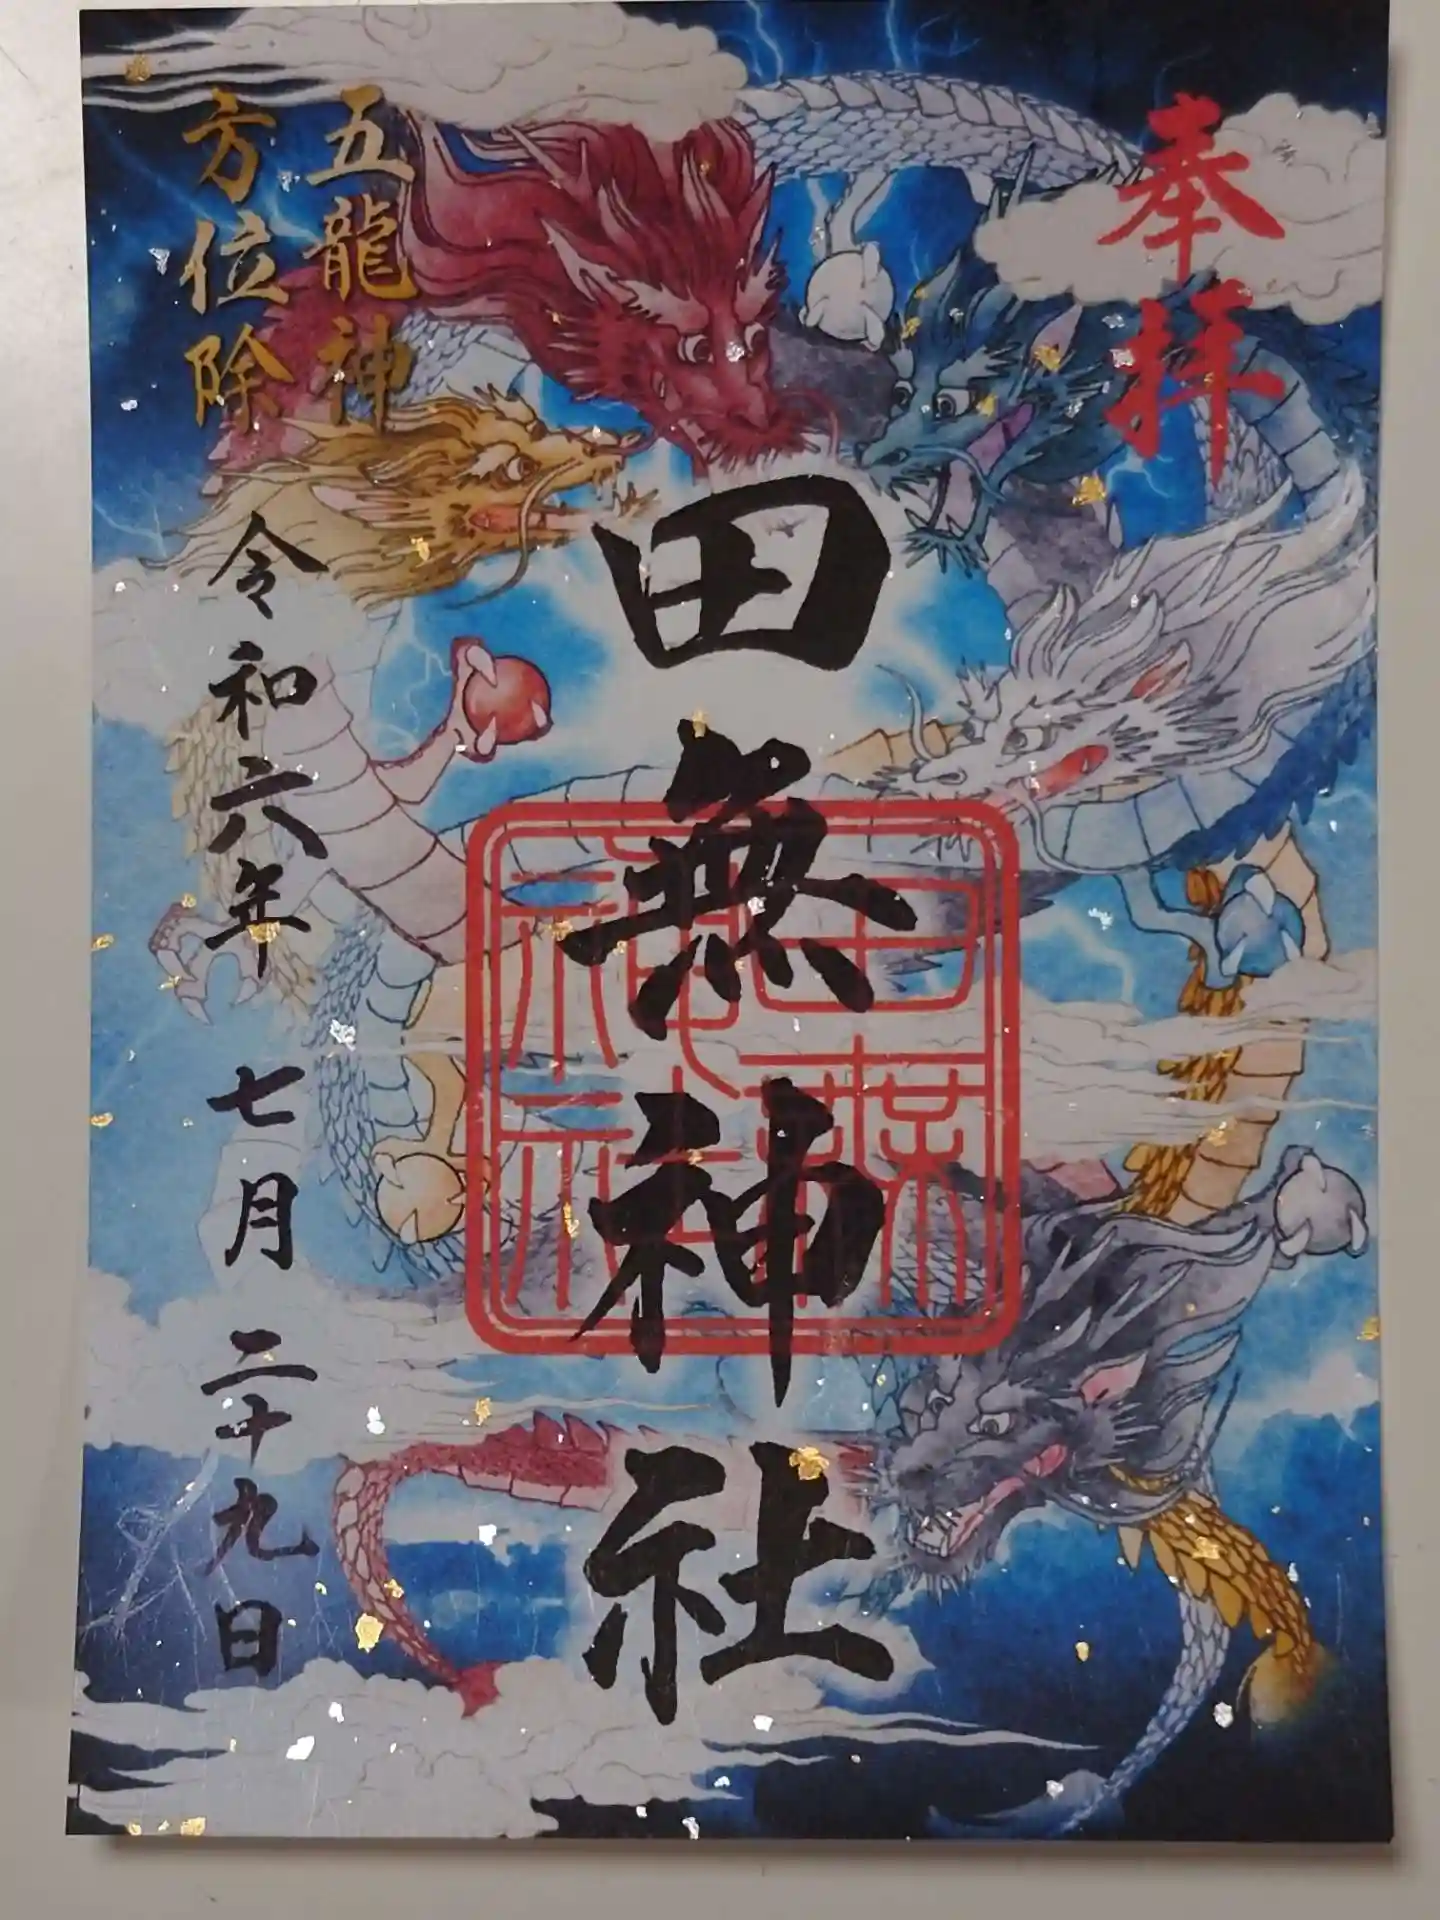 奉拝
田無神社
田無
神社
五龍神
方位除
令和六年 七月 二十九日